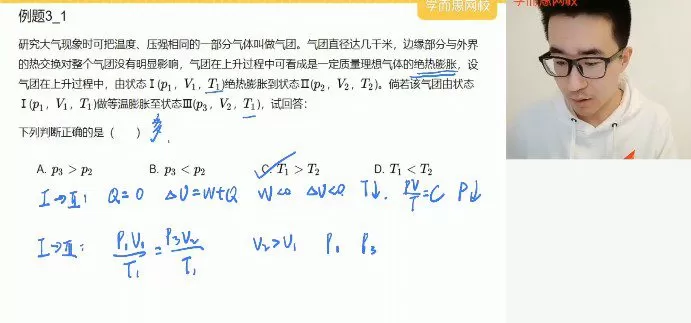 学而思网校
学而思网校
例题3_1
研究大气现象时可把温度、压强相同的一部分气体叫做气团。气团直径达几千米，边缘部分与外界
的热交换对整个气团没有明显影响，气团在上升过程中可看成是一定质量理想气体的绝热膨胀，设
气团在上升过程中，由状态Ⅰ(p₁，V₁，T₁)绝热膨胀到状态Ⅱ(p₂，V₂，T₂)。倘若该气团由状态
Ⅰ(p₁，V₁，T₁)做等温膨胀至状态Ⅲ(p₃，V₂，T₁)，试回答：
下列判断正确的是（ ）多.
A. p₃ > p₂ B. p₃ < p₂ C. T₁ > T₂ D. T₁ < T₂
Ⅰ→Ⅱ: Q=0 ΔU=W+Q W<0 ΔU<0 T↓. PV/T=C P↓
Ⅰ→Ⅲ: P₁V₁/T₁=P₃V₂/T₁ V₂>V₁ P₁ P₃